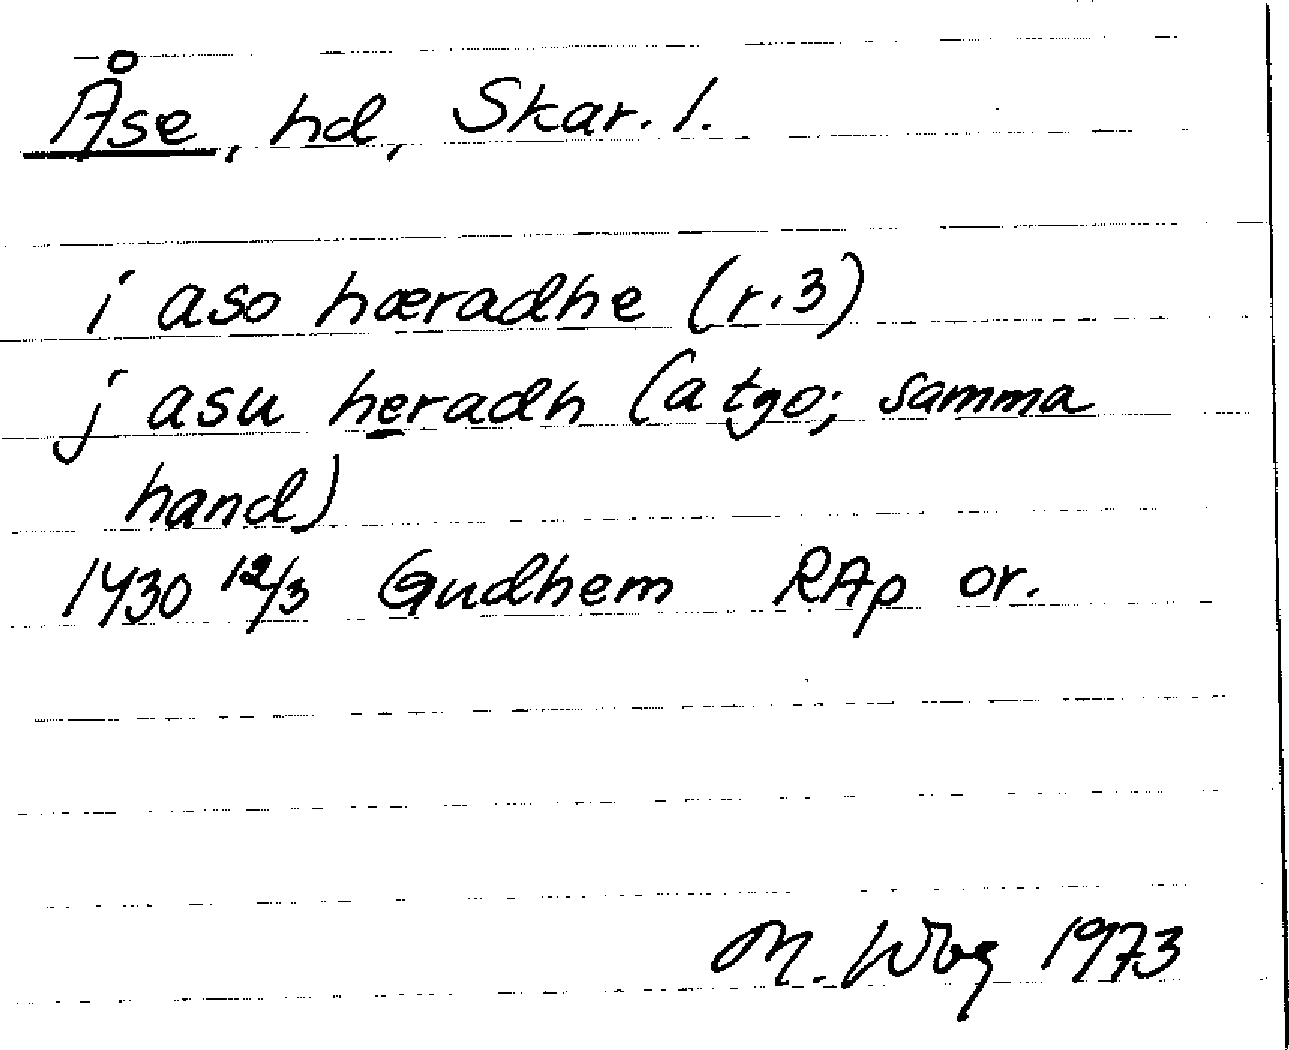 Åse, hd, Skar. l.
i aso hæradhe (r.3)
j asu heradh (a tgo; samma
hand)
1430 12/3 Gudhem RAp or.
M. Wbg 1973